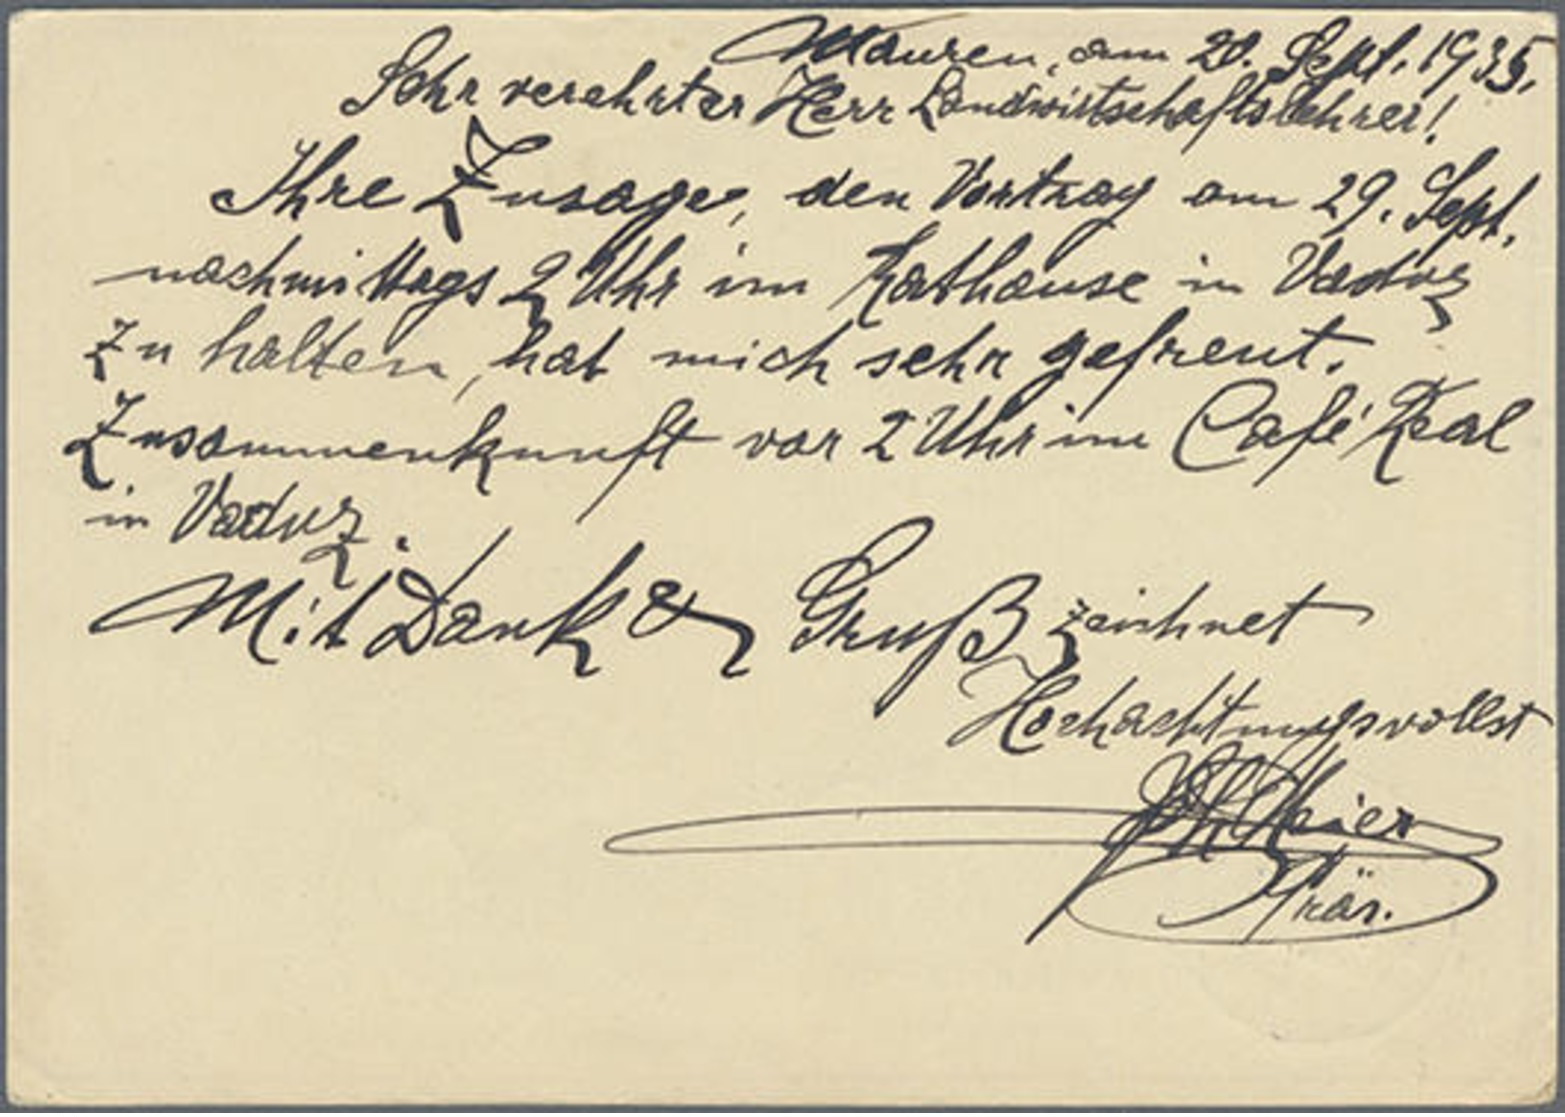 Mauren, am 20. Sept. 1935.
Sehr verehrter Herr Landwirtschaftslehrer!
Ihre Zusage, den Vortrag am 29. Sept.
nachmittags 2 Uhr im Rathause in Vaduz
zu halten, hat mich sehr gefreut.
Zusammenkunft vor 2 Uhr im Café Real
in Vaduz.
Mit Dank & Gruß zeichnet
Hochachtungsvollst
Meier
Präs.